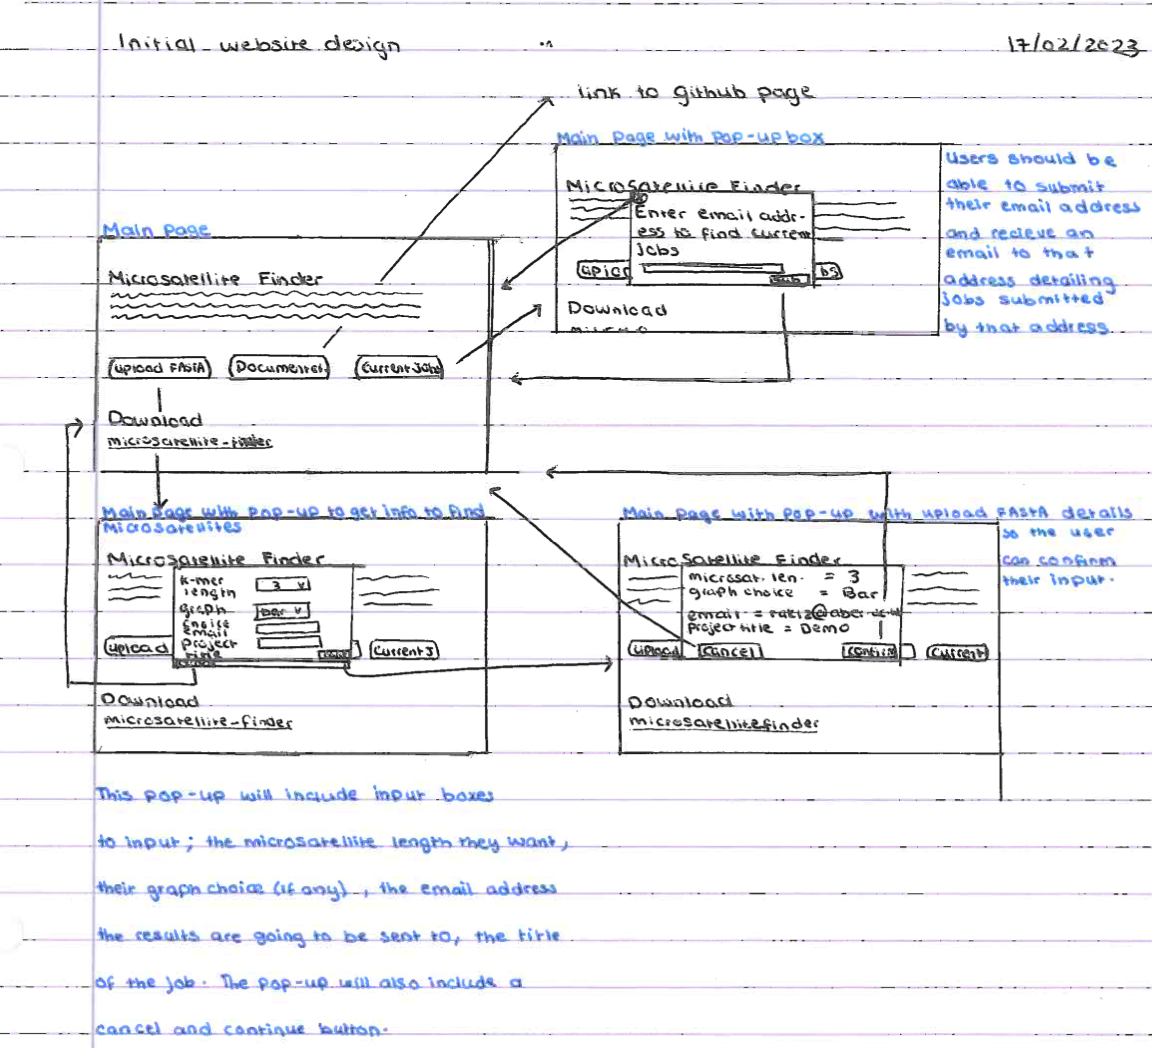 Initial website design
17/02/2023
link to github page
Main Page with Pop-up box
Microsatellite Finder
Enter email addr-
ess to find current
jobs
Download
users should be
able to submit
their email address
and recieve an
email to that
address detailing
jobs submitted
by that address
Main Page
Microsatellite Finder
Upload FAStA
Current jobs
Download
microsatellite-finder
Main Page with pop-up to get info to find
Microsatellites
Microsatellite Finder
k-mer
length
3 v
graph
choice
bar v
email
project
title
Upload
Current J
Download
microsatellite-finder
Main Page with pop-up with upload FAStA details
so the user
can confirm
their input.
Microsatellite Finder
microsat. len. = 3
graph choice = Bar
email =
project title = Demo
Upload
Cancel
Confirm
Current
Download
microsatellitefinder
This pop-up will include input boxes
to input; the microsatellite length they want,
their graph choice (if any), the email address
the results are going to be sent to, the title
of the job. The pop-up will also include a
cancel and continue button.